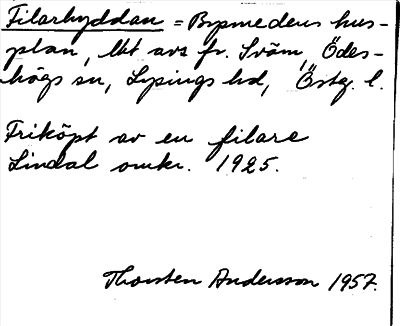 Filarhyddan = Bysmedens hus-
plan, lht avs fr. Sväm, Ödes-
högs sn, Lysings hd, Östg. l.
Friköpt av en filare
Lindal omkr. 1925.
Thorsten Andersson 1957.